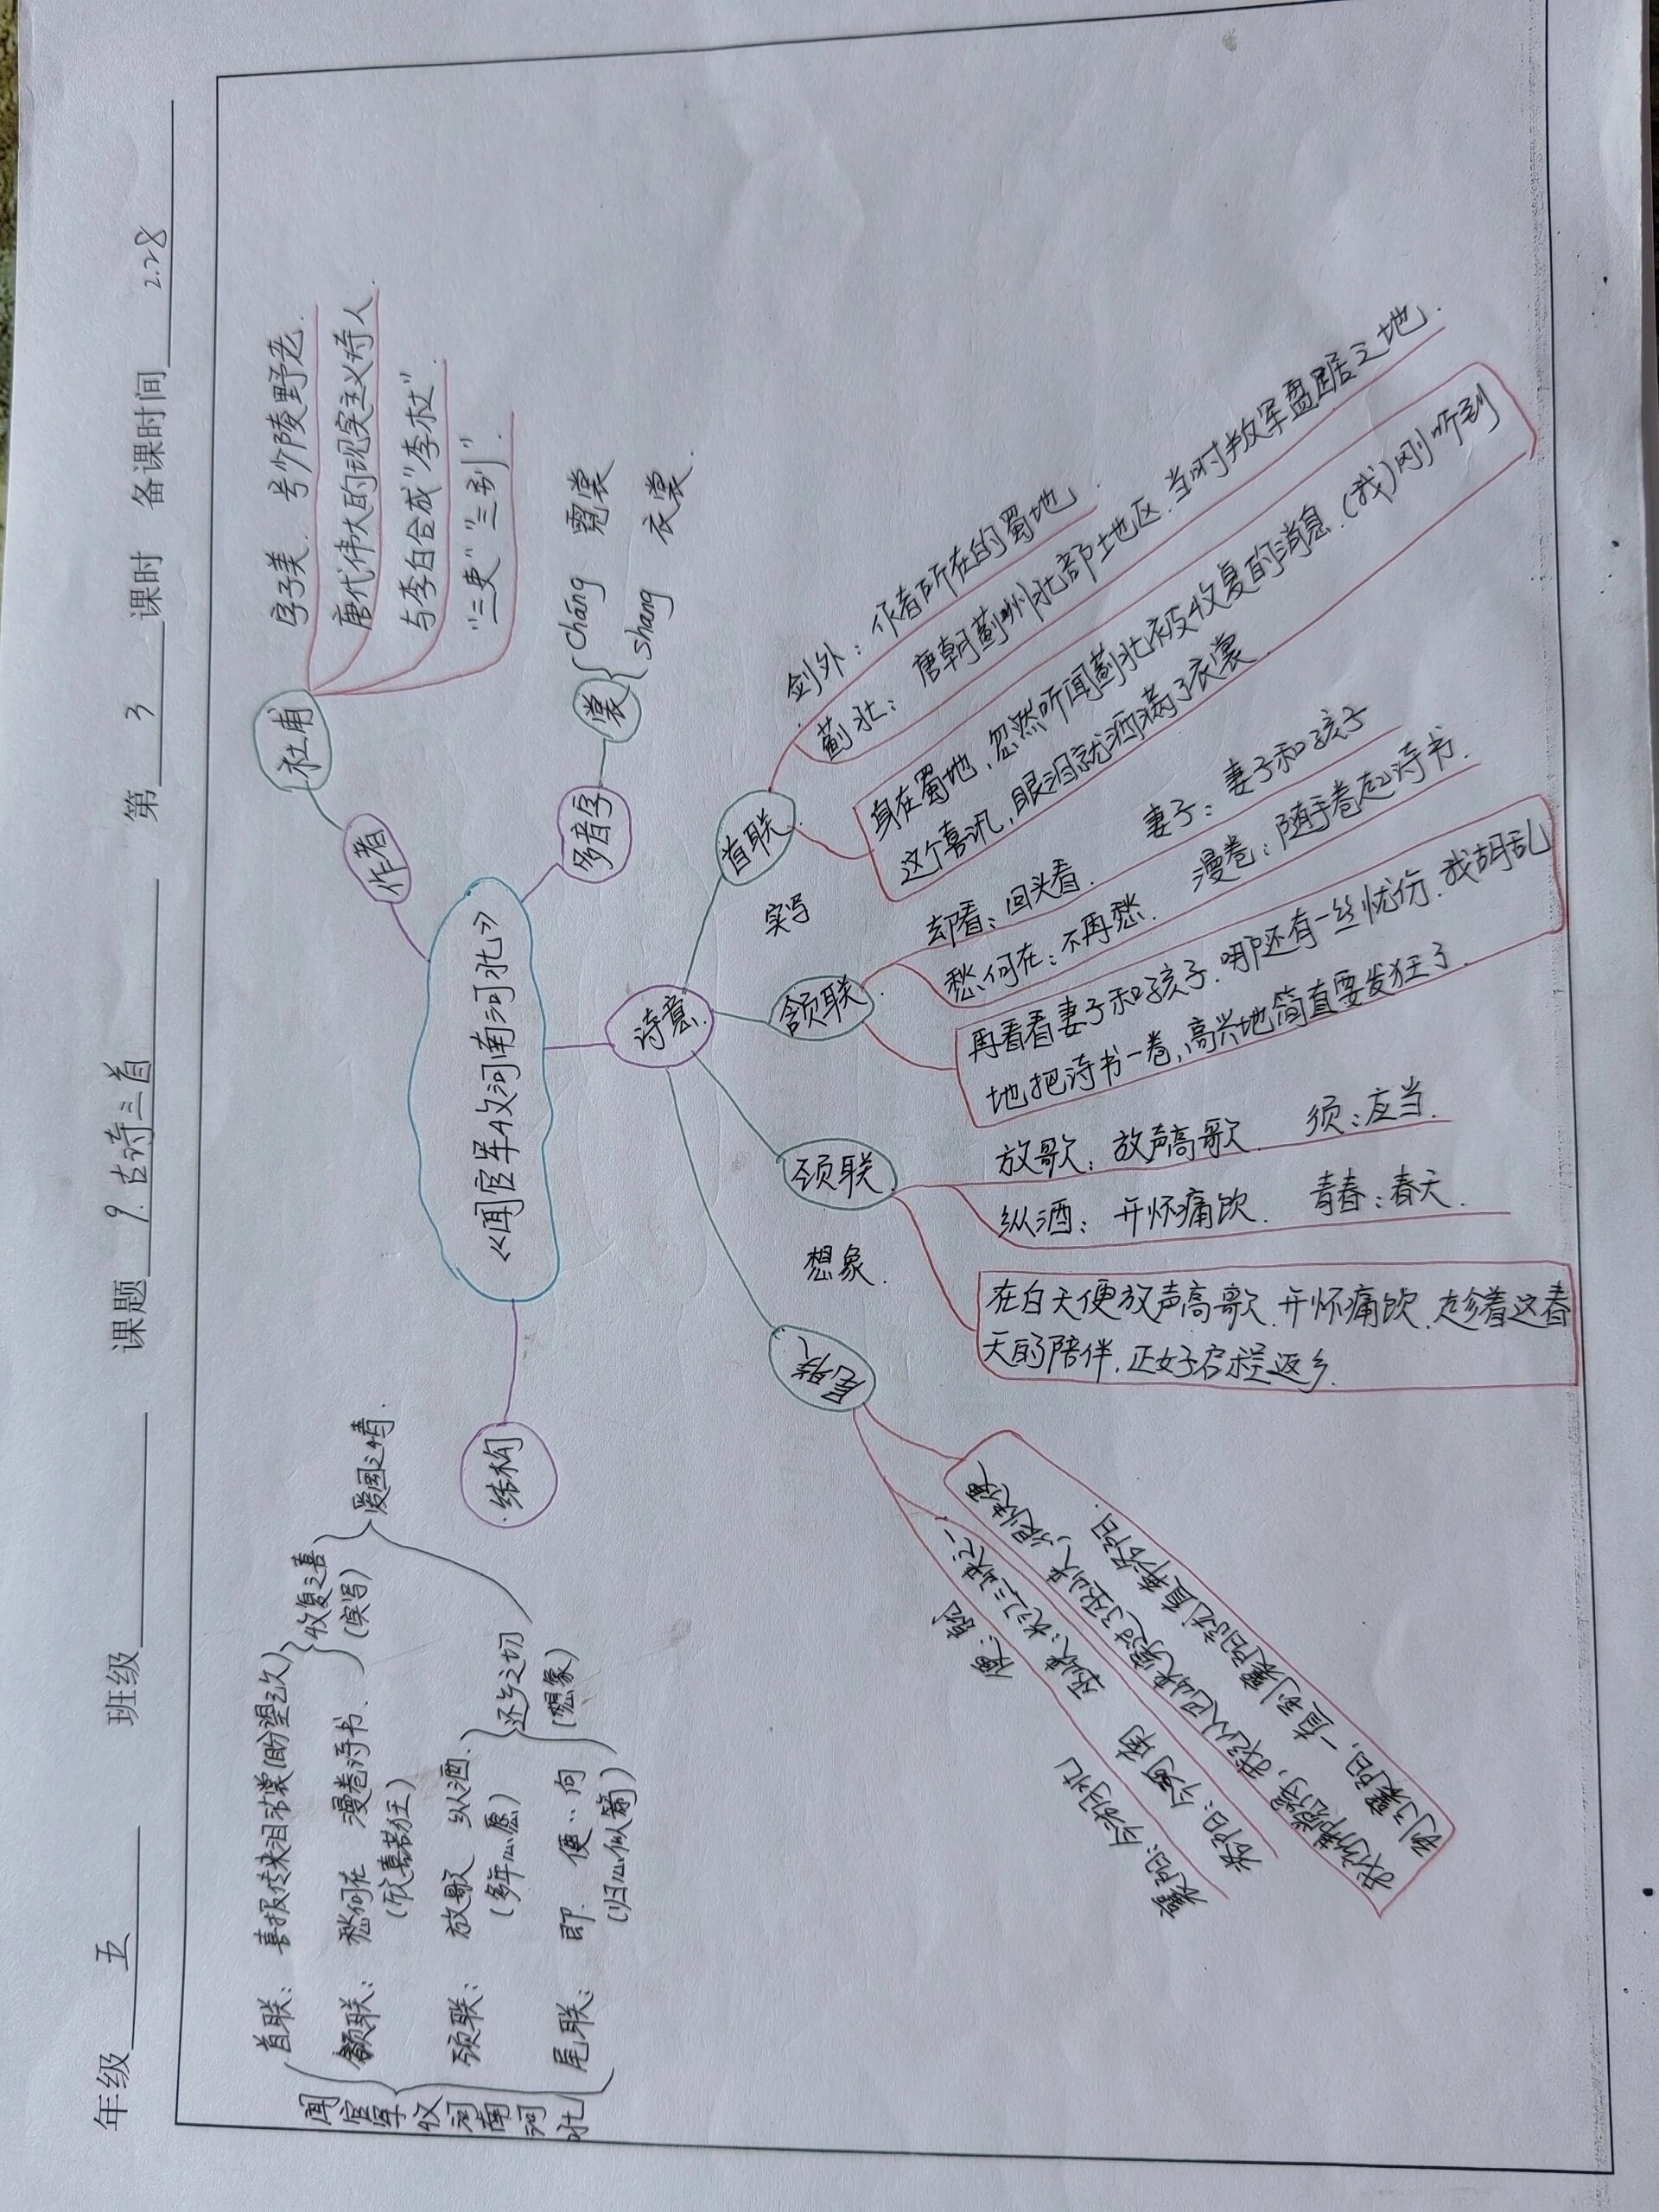 年级 五 班级 课题 9.古诗三首 第 3 课时 备课时间 2.28
《闻官军收河南河北》
作者
杜甫
字子美. 号少陵野老.
唐代伟大的现实主义诗人
与李白合成"李杜".
"三吏""三别".
多音字
裳
cháng 霓裳
shang 衣裳.
诗意.
首联
剑外: 作者所在的蜀地.
蓟北: 唐朝蓟州北部地区.当时叛军盘踞之地.
身在蜀地,忽然听闻蓟北被收复的消息.(我)刚听到
这个喜讯,眼泪就洒满了衣裳
实写
颔联.
却看:回头看. 妻子:妻子和孩子
愁何在:不再愁. 漫卷:随手卷起诗书.
再看看妻子和孩子.哪还有一丝忧伤.我胡乱
地把诗书一卷,高兴地简直要发狂了.
颈联
放歌:放声高歌. 须:应当.
纵酒: 开怀痛饮. 青春:春天.
在白天便放声高歌.开怀痛饮.趁着这春
天的陪伴.正好启程返乡.
想象.
尾联
便:就
巫峡:长江三峡之一
襄阳:今湖北
洛阳:今河南
我从巴峡穿过了巫峡,很快便
到了襄阳,一直到襄阳就直奔洛阳.
结构
闻官军收河南河北
首联: 喜报传来泪沾裳(盼望之久)
颔联: 愁何在 漫卷诗书.
(欣喜若狂)
收复之喜
(实写)
颈联: 放歌 纵酒.
(多年心愿)
尾联: 即. 便.. 向
(归心似箭)
还乡之切
(想象)
爱国之情.